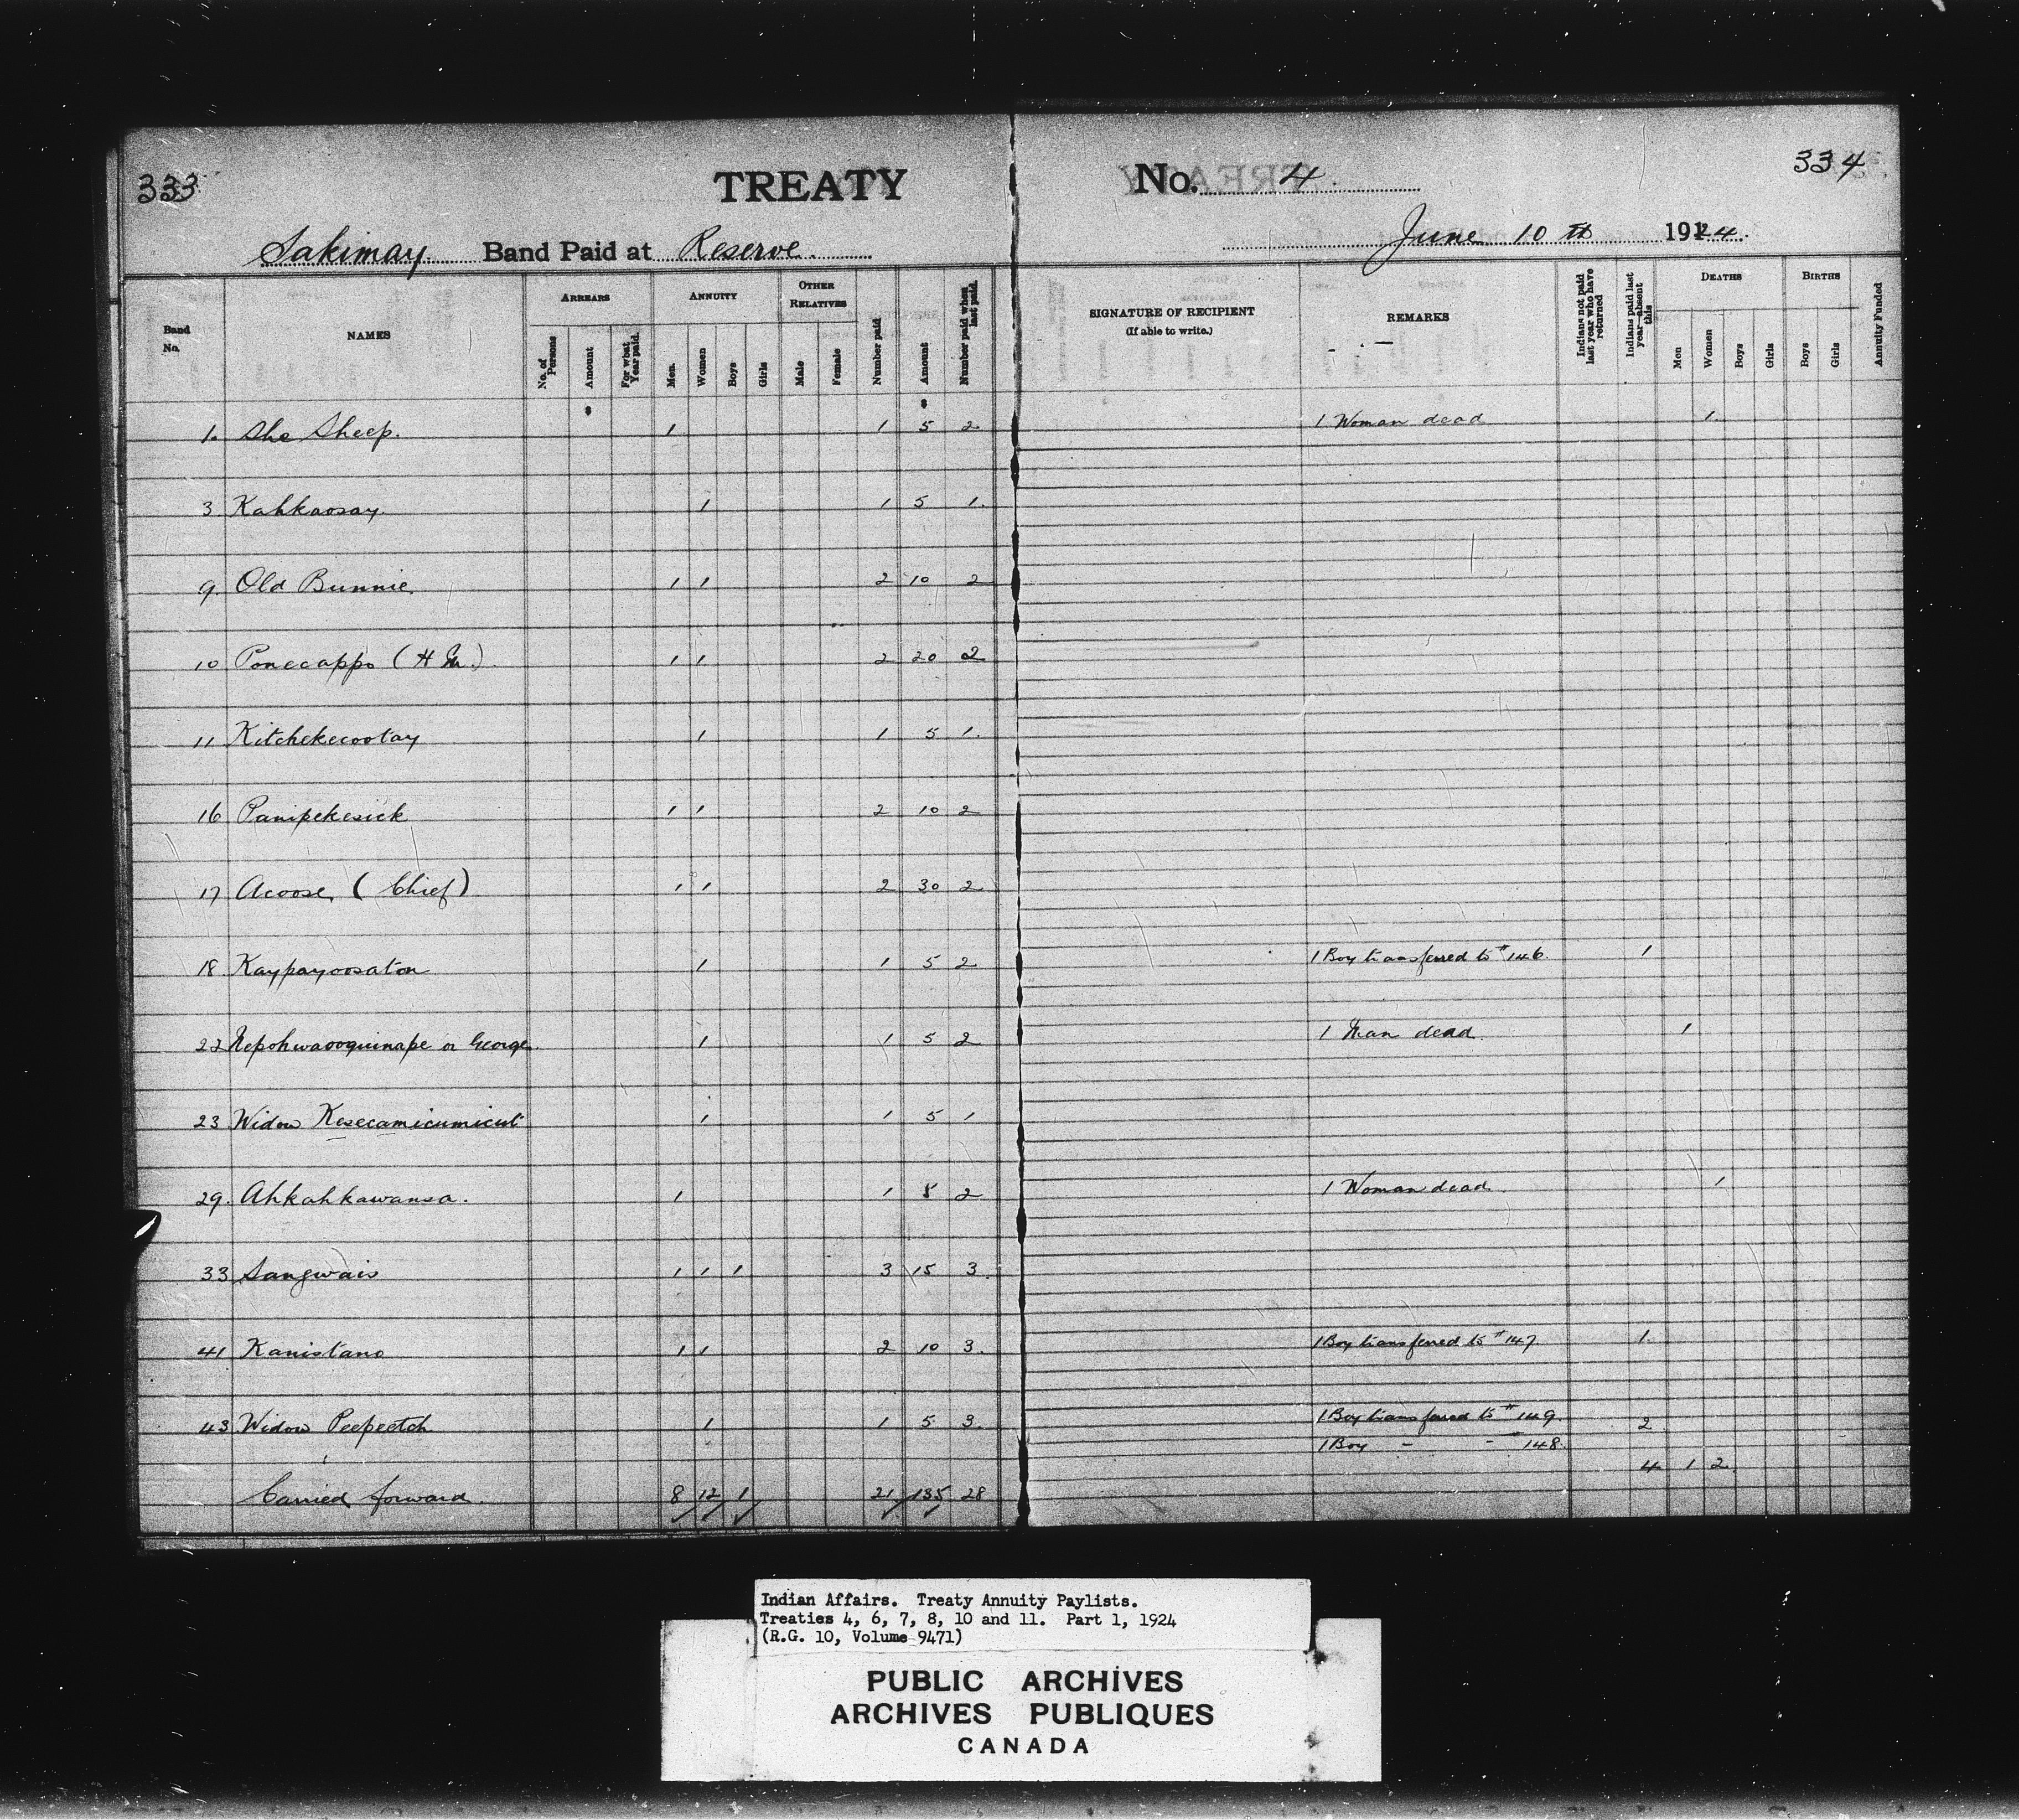 333 TREATY No. 4. 334
Sakimay Band Paid at Reserve. June 10th 1924.
Band No. NAMES ARREARS ANNUITY OTHER RELATIVES Number paid Amount Number paid when last paid. SIGNATURE OF RECIPIENT (If able to write.) REMARKS Indians not paid last year who have returned Indians paid last year—absent this DEATHS BIRTHS Annuity Funded
No. of Persons Amount For what Year paid. Men. Women Boys Girls Male Female Men Women Boys Girls Boys Girls
$ $
1. She Sheep. 1 1 5 2 1 Woman dead 1.
3 Kahkaosay. 1 1 5 1.
9 Old Bunnie. 1 1 2 10 2
10 Ponecappo (H M.). 1 1 2 20 2
11 Kitchekecootay 1 1 5 1.
16 Panipekesick 1 1 2 10 2
17 Acoose, (Chief) 1 1 2 30 2
18 Kaypayoosaton 1 1 5 2 1 Boy transferred to #146. 1
22 Nepohwaooquinape or George. 1 1 5 2 1 Man dead. 1
23 Widow Kesecamicumicut 1 1 5 1
29. Ahkahkawansa. 1 1 5 2 1 Woman dead. 1
33 Sangwais 1 1 1 3 15 3.
41 Kanistano 1 1 2 10 3. 1 Boy transferred to #147. 1.
43 Widow Peepeetch 1 1 5 3. 1 Boy transferred to #149. 2
1 Boy - - 148.
4 1 2
Carried forward. 8 12 1 21 135 28
Indian Affairs. Treaty Annuity Paylists.
Treaties 4, 6, 7, 8, 10 and 11. Part 1, 1924
(R.G. 10, Volume 9471)
PUBLIC ARCHIVES
ARCHIVES PUBLIQUES
CANADA